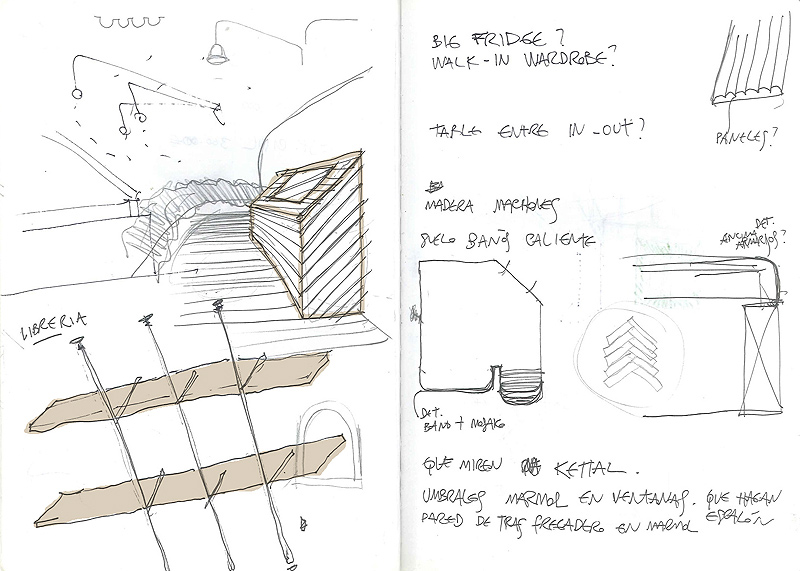 LIBRERIA
BIG FRIDGE?
WALK-IN WARDROBE?
PANELES?
TABLE ENTRE IN-OUT?
MADERA MACHONES
SUELO BAÑOS CALIENTE
DET.
ENCIMA
ARMARIOS?
DET.
BAÑO +
QUE MIREN KETTAL.
UMBRALES MARMOL EN VENTANAS. QUE HAGAN
PARED DE TRAS FREGADERO EN MARMOL